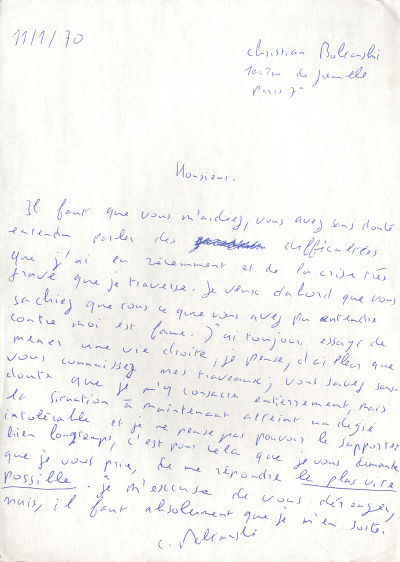 11/1/70
Christian Boltanski
rue de grenelle
Paris 7e
Monsieur.
Il faut que vous m'aidiez, vous avez sans doute
entendu parler des difficultées
que j'ai eu récemment et de la crise très
grave que je traverse. Je veux dabord que vous
sachiez que tous ce que vous avez pu entendre
contre moi est faux. J'ai toujours essayé de
mener une vie droite, je pense, d'ailleur que
vous connaissez mes travaux; vous savez sans
doute que je m'y consacre entièrement, mais
la situation à maintenant atteint un degré
intolérable et je ne pense pas pouvoir le supporter
bien longtemps, c'est pour cela que je vous demande
que je vous prie, de me répondre le plus vite
possible. je m'excuse de vous déranger,
mais, il faut absolument que je m'en sorte.
C. Boltanski